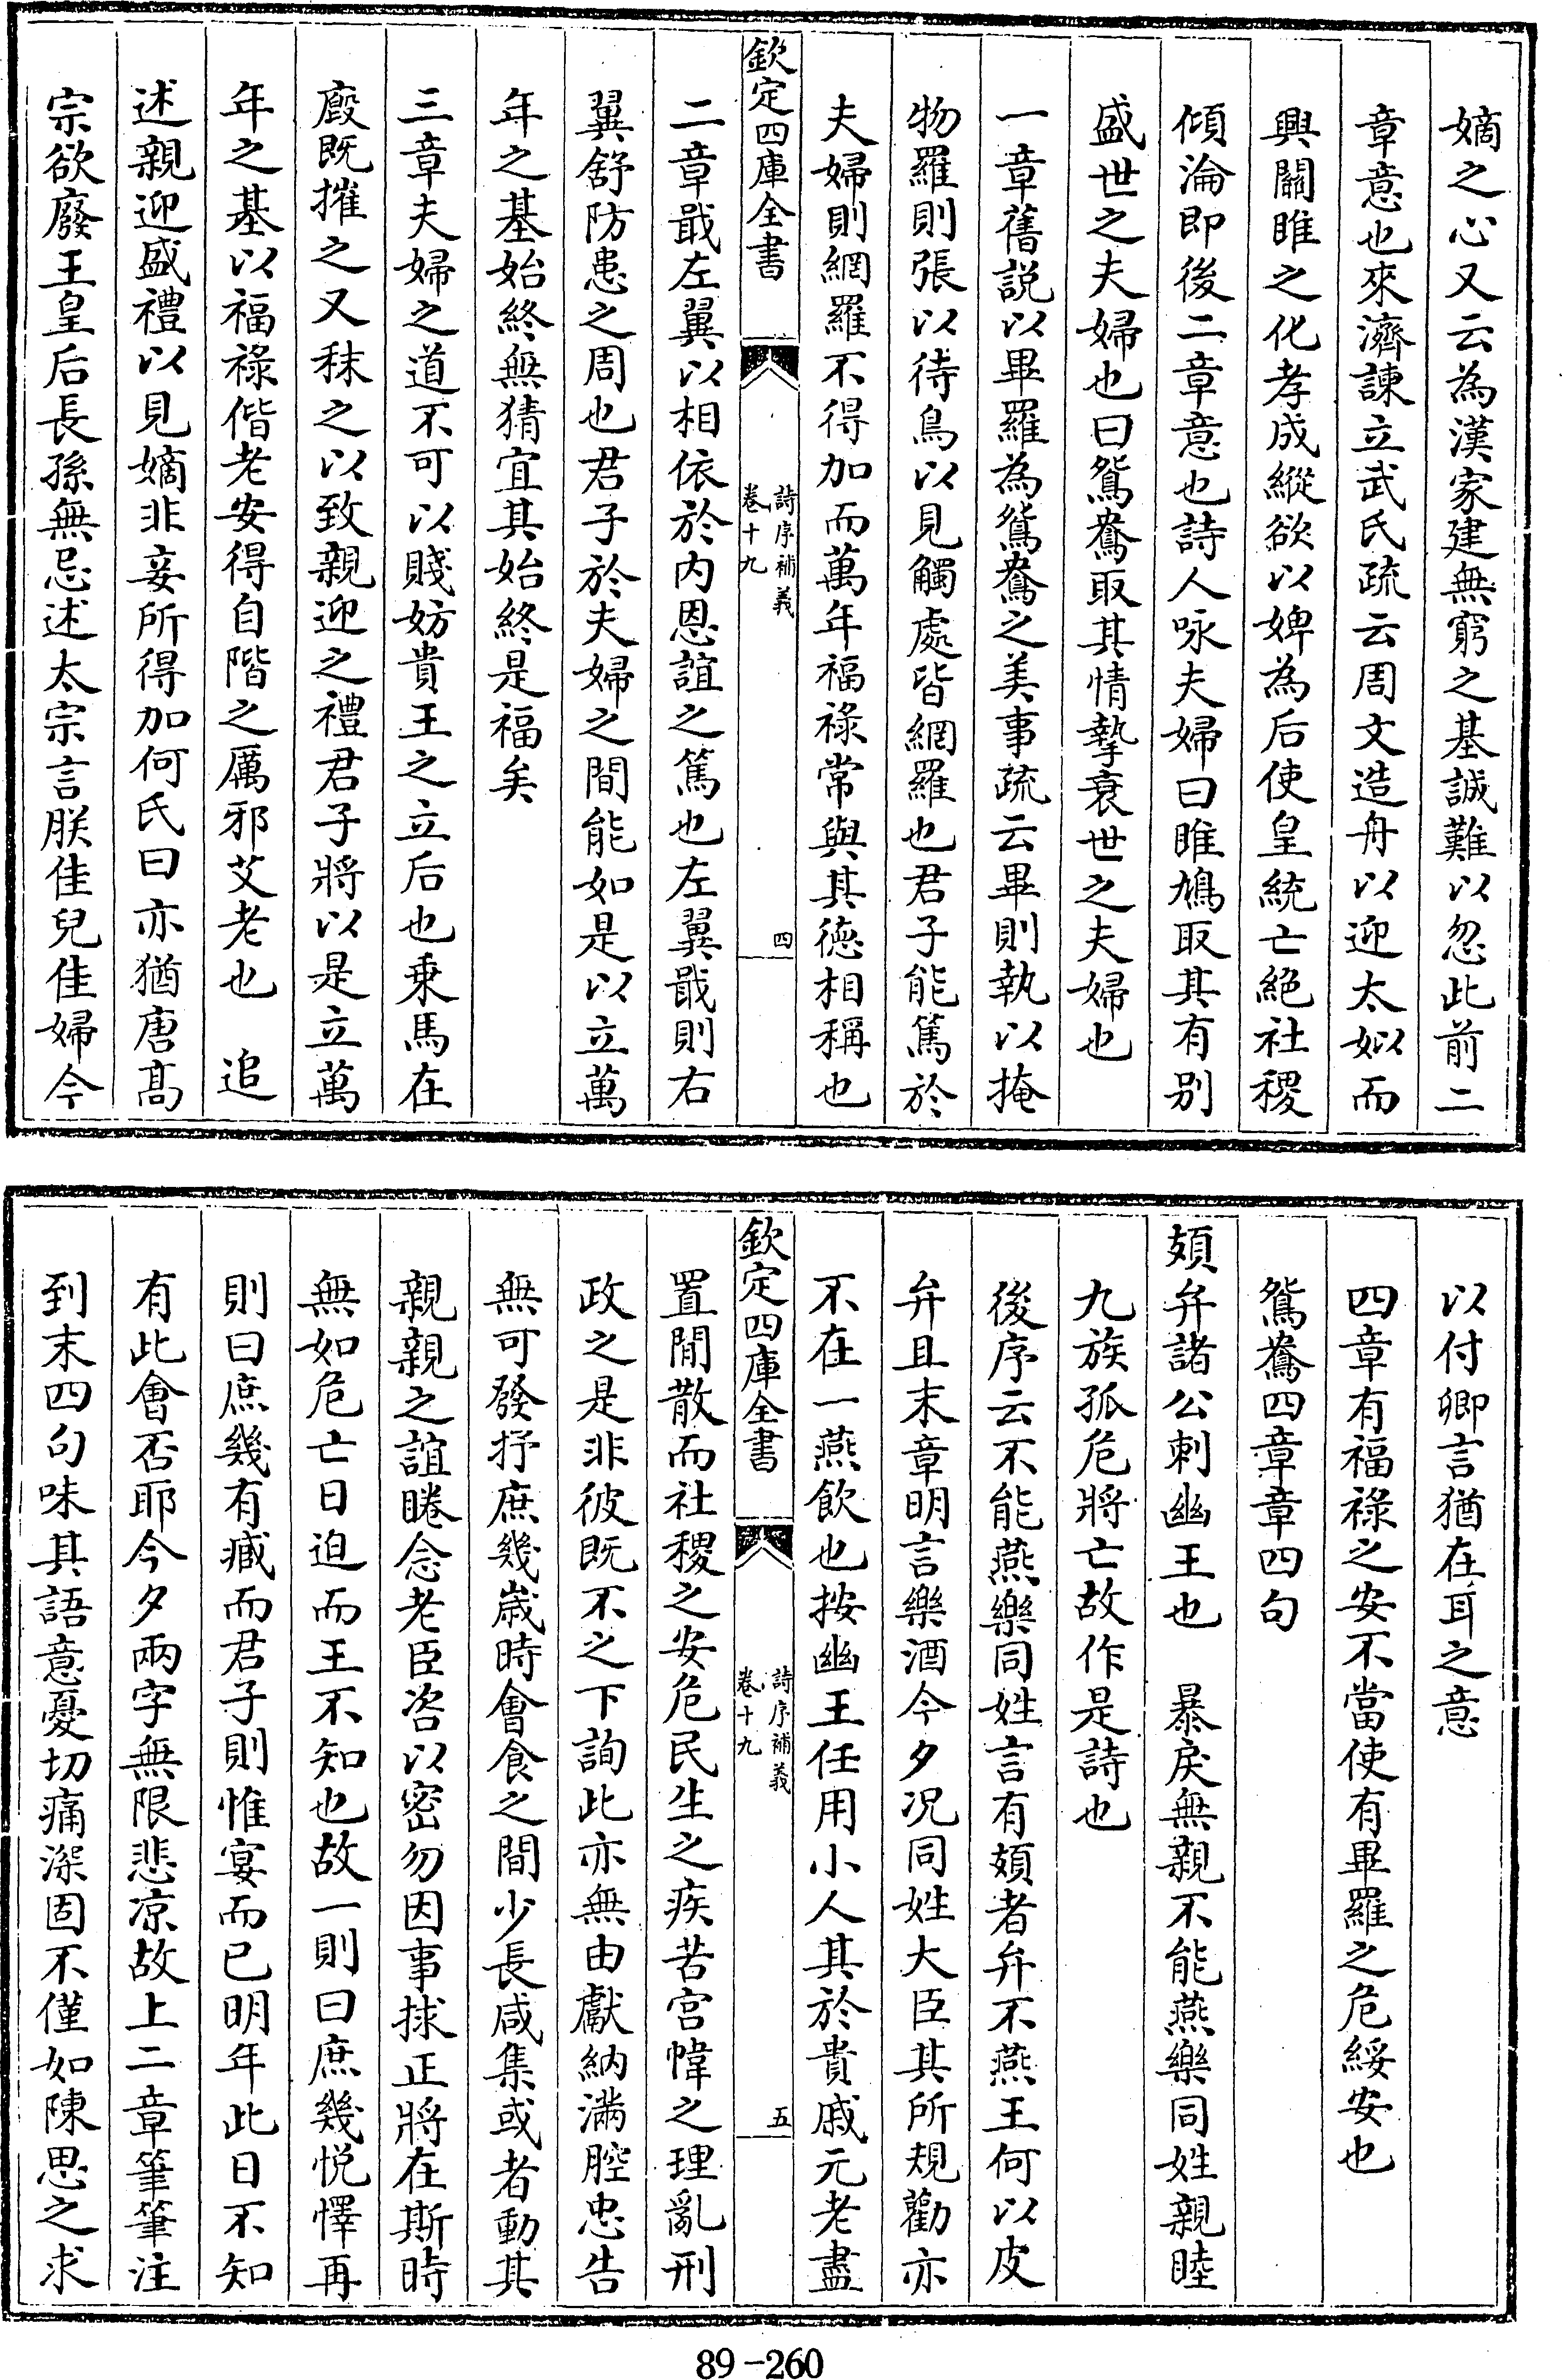 嫡之心又云為漢家建無窮之基誠難以忽此前二
章意也來濟諫立武氏疏云周文造舟以迎太姒而
興關雎之化孝成縱欲以婢為后使皇統亡絕社稷
傾淪即後二章意也詩人咏夫婦曰雎鳩取其有别
盛世之夫婦也曰鴛鴦取其情摯衰世之夫婦也
一章舊説以畢羅為鴛鴦之美事疏云畢則執以掩
物羅則張以待鳥以見觸處皆網羅也君子能篤於
夫婦則網羅不得加而萬年福祿常與其徳相稱也
欽定四庫全書
詩序補義
卷十九
四
二章戢左翼以相依於内恩誼之篤也左翼戢則右
翼舒防患之周也君子於夫婦之間能如是以立萬
年之基始終無猜宜其始終是福矣
三章夫婦之道不可以賤妨貴王之立后也乗馬在
廄既摧之又秣之以致親迎之禮君子將以是立萬
年之基以福祿偕老安得自階之厲邪艾老也　追
述親迎盛禮以見嫡非妾所得加何氏曰亦猶唐髙
宗欲廢王皇后長孫無忌述太宗言朕佳兒佳婦今
以付卿言猶在耳之意
四章有福祿之安不當使有畢羅之危綏安也
鴛鴦四章章四句
頍弁諸公刺幽王也　暴戾無親不能燕樂同姓親睦
九族孤危將亡故作是詩也
後序云不能燕樂同姓言有頍者弁不燕王何以皮
弁且末章明言樂酒今夕况同姓大臣其所規勸亦
不在一燕飲也按幽王任用小人其於貴戚元老盡
欽定四庫全書
詩序補義
卷十九
五
置閒散而社稷之安危民生之疾苦宫幃之理亂刑
政之是非彼既不之下詢此亦無由獻納滿腔忠告
無可發抒庶幾歲時會食之間少長咸集或者動其
親親之誼睠念老臣咨以密勿因事捄正將在斯時
無如危亡日迫而王不知也故一則曰庶幾悦懌再
則曰庶幾有臧而君子則惟宴而已明年此日不知
有此會否耶今夕兩字無限悲凉故上二章筆筆注
到末四句味其語意憂切痛深固不僅如陳思之求
89-260